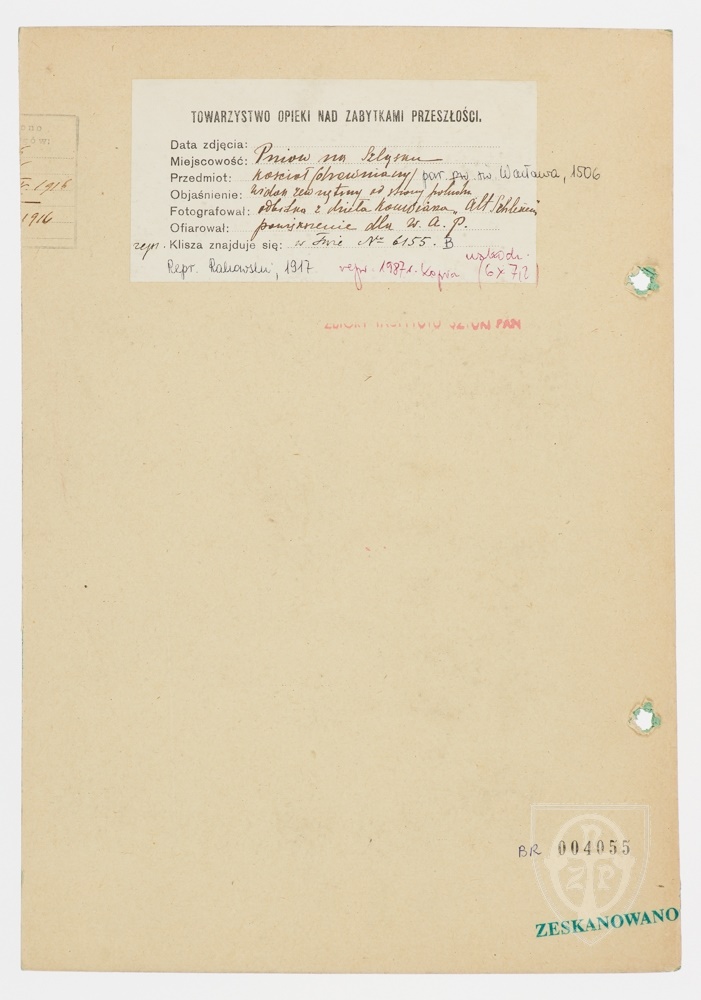 TOWARZYSTWO OPIEKI NAD ZABYTKAMI PRZESZŁOŚCI.
Data zdjęcia:
Miejscowość: Pniow na Szląsku
Przedmiot: kościoł /drewniany/ par. pw. św. Wacława, 1506
Objaśnienie: widok zewnętrzny od strony połudn
Fotografował: odbitka z dzieła "Alt Schlesien"
Ofiarował: powiększenie dla W. A. P.
repr. Klisza znajduje się: w Twie № 6155. B
Repr. Rakowski, 1917 repr. 1987 r. Kopia (6 x 7,2)
1916
1916
PAN
BR 004055
TZP
ZESKANOWANO